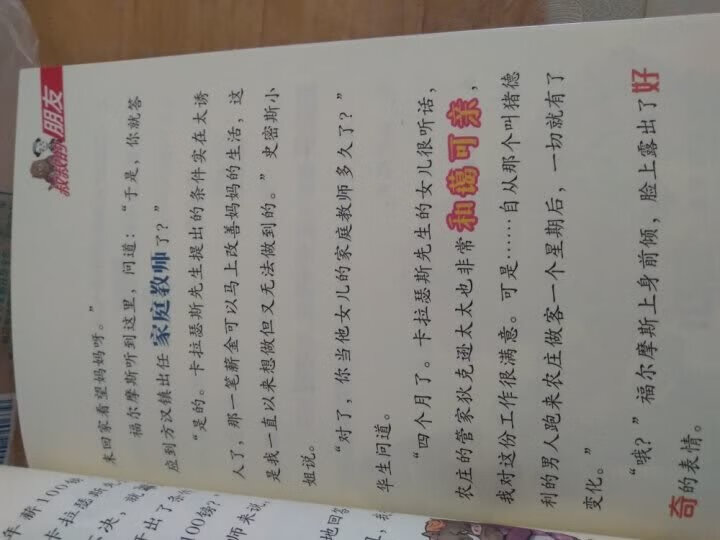 叔叔的朋友
来回家看望妈妈呀。”
福尔摩斯听到这里，问道：“于是，你就答
应到方汉镇出任家庭教师了？”
“是的。卡拉瑟斯先生提出的条件实在太诱
人了，那一笔薪金可以马上改善妈妈的生活，这
是我一直以来想做但又无法做到的。”史密斯小
姐说。
“对了，你当他女儿的家庭教师多久了？”
华生问道。
“四个月了。卡拉瑟斯先生的女儿很听话，
农庄的管家狄克逊太太也非常和蔼可亲，
我对这份工作很满意。可是……自从那个叫猪德
利的男人跑来农庄做客一个星期后，一切就有了
变化。”
“哦？”福尔摩斯上身前倾，脸上露出了好
奇的表情。
年薪100镑
卡拉瑟斯先
决，就
开出了
100镑？
师来说
地回答